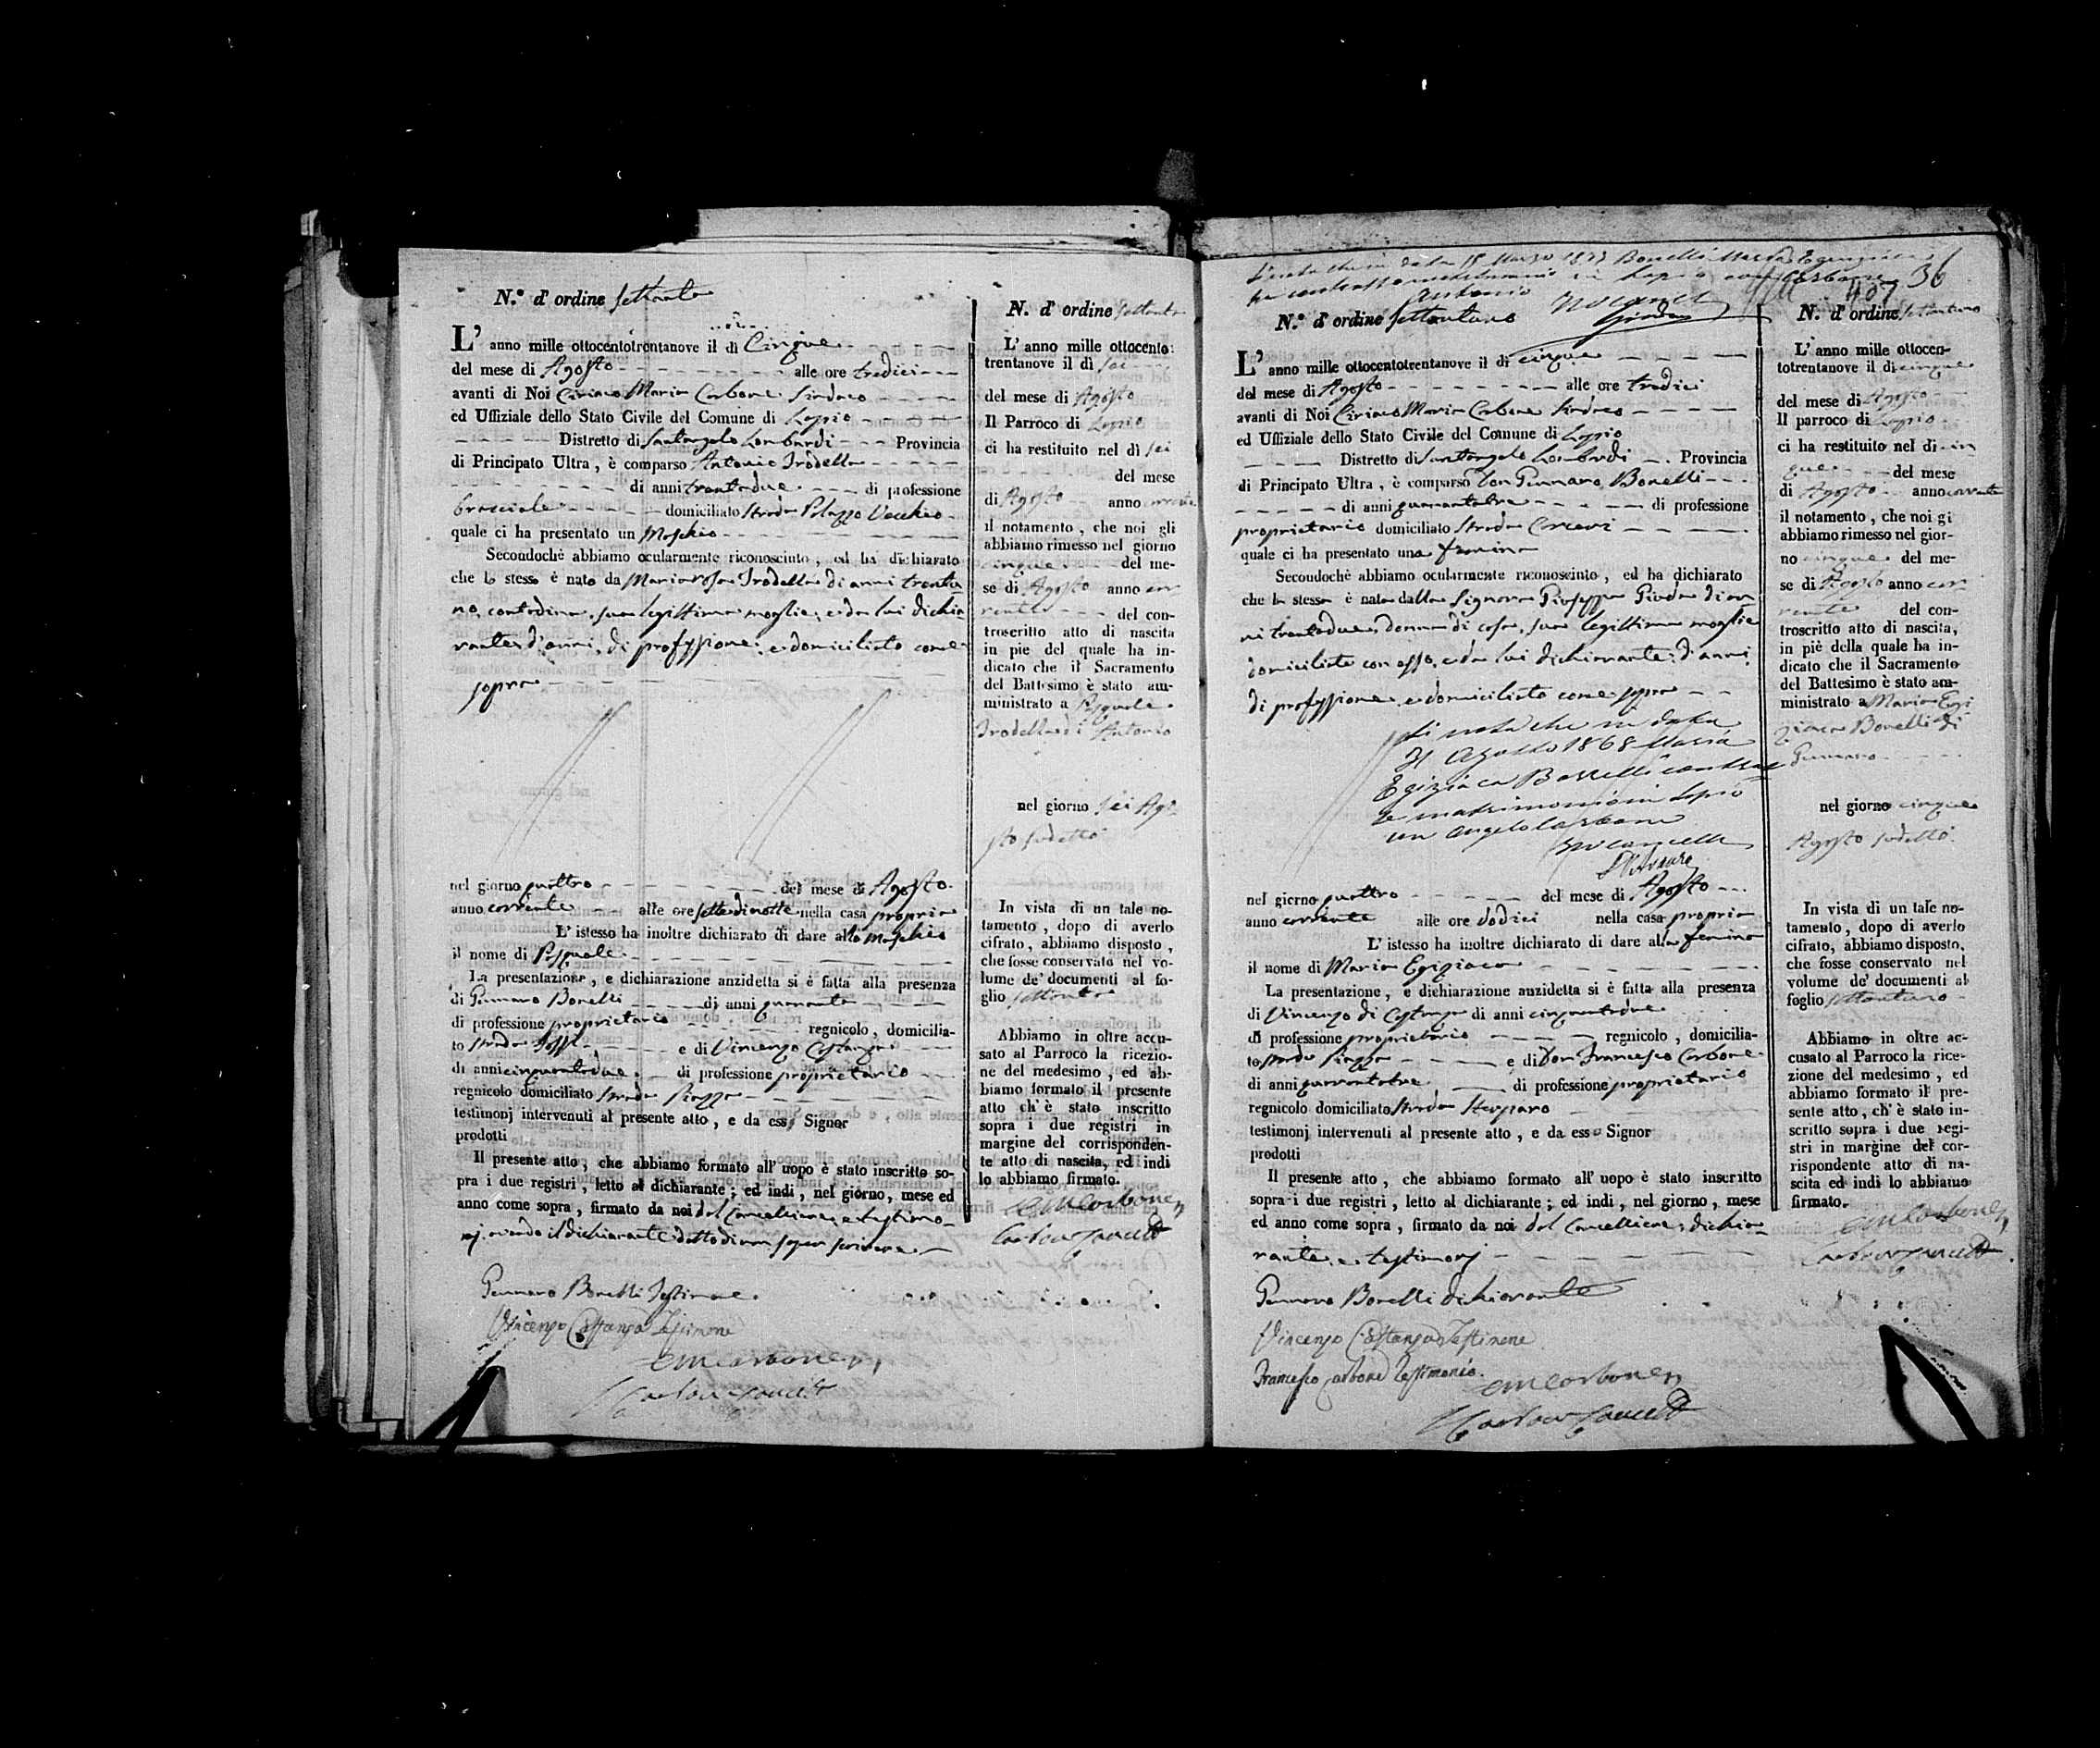 N.° d' ordine settanta
L' anno mille ottocentotrentanove il dì Cinque
del mese di Agosto alle ore tredici
avanti di Noi Ciriaco Maria Carbone Sindaco
ed Uffiziale dello Stato Civile del Comune di Lapio
Distretto di Santangelo Lombardi Provincia
di Principato Ultra, è comparso Antonio Trodella
di anni trentadue di professione
bracciale domiciliato Strada Palazzo Vecchio
quale ci ha presentato un Maschio
Secondochè abbiamo ocularmente riconosciuto, ed ha dichiarato
che lo stesso è nato da Mariarosa Trodella di anni trenta-
no, contadina, sua legittima moglie, e da lui dichia-
rante d'anni, di professione, e domiciliato come
sopra
nel giorno quattro del mese di Agosto
anno corrente alle ore sette di notte nella casa propria
L' istesso ha inoltre dichiarato di dare allo maschio
il nome di Pasquale
La presentazione, e dichiarazione anzidetta si è fatta alla presenza
di Gennaro Bonelli di anni quaranta
di professione proprietario regnicolo, domicilia-
to strada e di Vincenzo Costanza
di anni cinquantadue di professione proprietario
regnicolo domiciliato Strada Piazza
testimonj intervenuti al presente atto, e da esso Signor
prodotti
Il presente atto, che abbiamo formato all' uopo è stato inscritto so-
pra i due registri, letto al dichiarante; ed indi, nel giorno, mese ed
anno come sopra, firmato da noi dal Cancelliere, e testimo-
nj, avendo il dichiarante detto di non saper scrivere
Gennaro Bonelli Testimone
Vincenzo Costanza Testimone
CMCarbone
N. d' ordine settanta
L' anno mille ottocento-
trentanove il dì sei
del mese di Agosto
Il Parroco di Lapio
ci ha restituito nel dì sei
del mese
di Agosto anno corrente
il notamento, che noi gli
abbiamo rimesso nel giorno
cinque del me-
se di Agosto anno cor-
rente del con-
troscritto atto di nascita
in pie del quale ha in-
dicato che il Sacramento
del Battesimo è stato am-
ministrato a Pasquale
Trodella di Antonio
nel giorno sei Ago-
sto sudetto
In vista di un tale no-
tamento, dopo di averlo
cifrato, abbiamo disposto,
che fosse conservato nel vo-
lume de' documenti al fo-
glio settanta
Abbiamo in oltre accu-
sato al Parroco la ricezio-
ne del medesimo, ed ab-
biamo formato il presente
atto ch' è stato inscritto
sopra i due registri in
margine del corrisponden-
te atto di nascita, ed indi
lo abbiamo firmato.
CMCarbone
in data 15 Marzo 1877 Bonelli Maria Egiziaca
ha contratto matrimonio in Lapio con Carbone
Antonio
407 36
N.° d' ordine settantuno
L' anno mille ottocentotrentanove il dì cinque
del mese di Agosto alle ore tredici
avanti di Noi Ciriaco Maria Carbone Sindaco
ed Uffiziale dello Stato Civile del Comune di Lapio
Distretto di Santangelo Lombardi Provincia
di Principato Ultra, è comparso Don Gennaro Bonelli
di anni quarantatre di professione
proprietario domiciliato Strada
quale ci ha presentato una femina
Secondochè abbiamo ocularmente riconosciuto, ed ha dichiarato
che la stessa è nata dalla Signora Giuseppa di an-
ni trentadue, donna di casa, sua legittima moglie
domiciliata con esso, e da lui dichiarante, d'anni,
di professione, e domiciliato come sopra
Si nota che in data
31 Agosto 1868 Maria
Egiziaca Bonelli contras-
se matrimonio in Lapio
con Angelo Carbone
Il Cancelliere
nel giorno quattro del mese di Agosto
anno corrente alle ore dodici nella casa propria
L' istesso ha inoltre dichiarato di dare alla femina
il nome di Maria Egiziaca
La presentazione, e dichiarazione anzidetta si è fatta alla presenza
di Vincenzo di Costanza di anni cinquantadue
di professione proprietario regnicolo, domicilia-
to strada Piazza e di Don Francesco Carbone
di anni quarantatre di professione proprietario
regnicolo domiciliato Strada
testimonj intervenuti al presente atto, e da esso Signor
prodotti
Il presente atto, che abbiamo formato all' uopo è stato inscritto
sopra i due registri, letto al dichiarante; ed indi, nel giorno, mese
ed anno come sopra, firmato da noi dal Cancelliere, dichia-
rante, e testimonj
Gennaro Bonelli dichiarante
Vincenzo Costanza Testimone
Francesco Carbone Testimonio
CMCarbone
N. d' ordine settantuno
L' anno mille ottocen-
totrentanove il dì cinque
del mese di Agosto
Il parroco di Lapio
ci ha restituito nel dì cin-
que del mese
di Agosto anno corrente
il notamento, che noi gi
abbiamo rimesso nel gior-
no cinque del me-
se di Agosto anno cor-
rente del con-
troscritto atto di nascita,
in piè della quale ha in-
dicato che il Sacramento
del Battesimo è stato am-
ministrato a Maria Egi-
ziaca Bonelli di
Gennaro
nel giorno cinque
Agosto sudetto
In vista di un tale no-
tamento, dopo di averlo
cifrato, abbiamo disposto,
che fosse conservato nel
volume de' documenti al
foglio settantuno
Abbiamo in oltre ac-
cusato al Parroco la rice-
zione del medesimo, ed
abbiamo formato il pre-
sente atto, ch' è stato in-
scritto sopra i due regi-
stri in margine del cor-
rispondente atto di na-
scita ed indi lo abbiamo
firmato.
CMCarbone